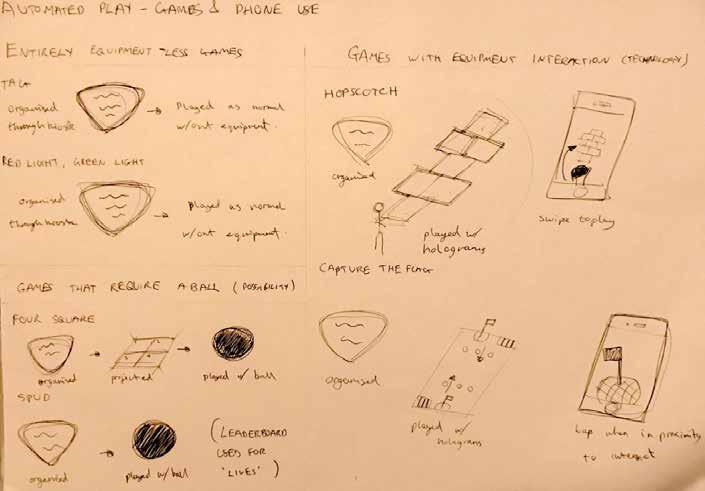 AUTOMATED PLAY - GAMES & PHONE USE
ENTIRELY EQUIPMENT-LESS GAMES
TAG
organised
through kiosk
Played as normal
w/out equipment.
RED LIGHT, GREEN LIGHT
organised
through kiosk
Played as normal
w/out equipment.
GAMES THAT REQUIRE A BALL (POSSIBILITY)
FOUR SQUARE
organised
projected
played w/ ball
SPUD
organised
played w/ ball
(LEADERBOARD
USED FOR
'LIVES')
GAMES WITH EQUIPMENT INTERACTION (TECHNOLOGY)
HOPSCOTCH
organised
played w/
holograms
swipe to play
CAPTURE THE FLAG
organised
played w/
holograms
tap when in proximity
to interact